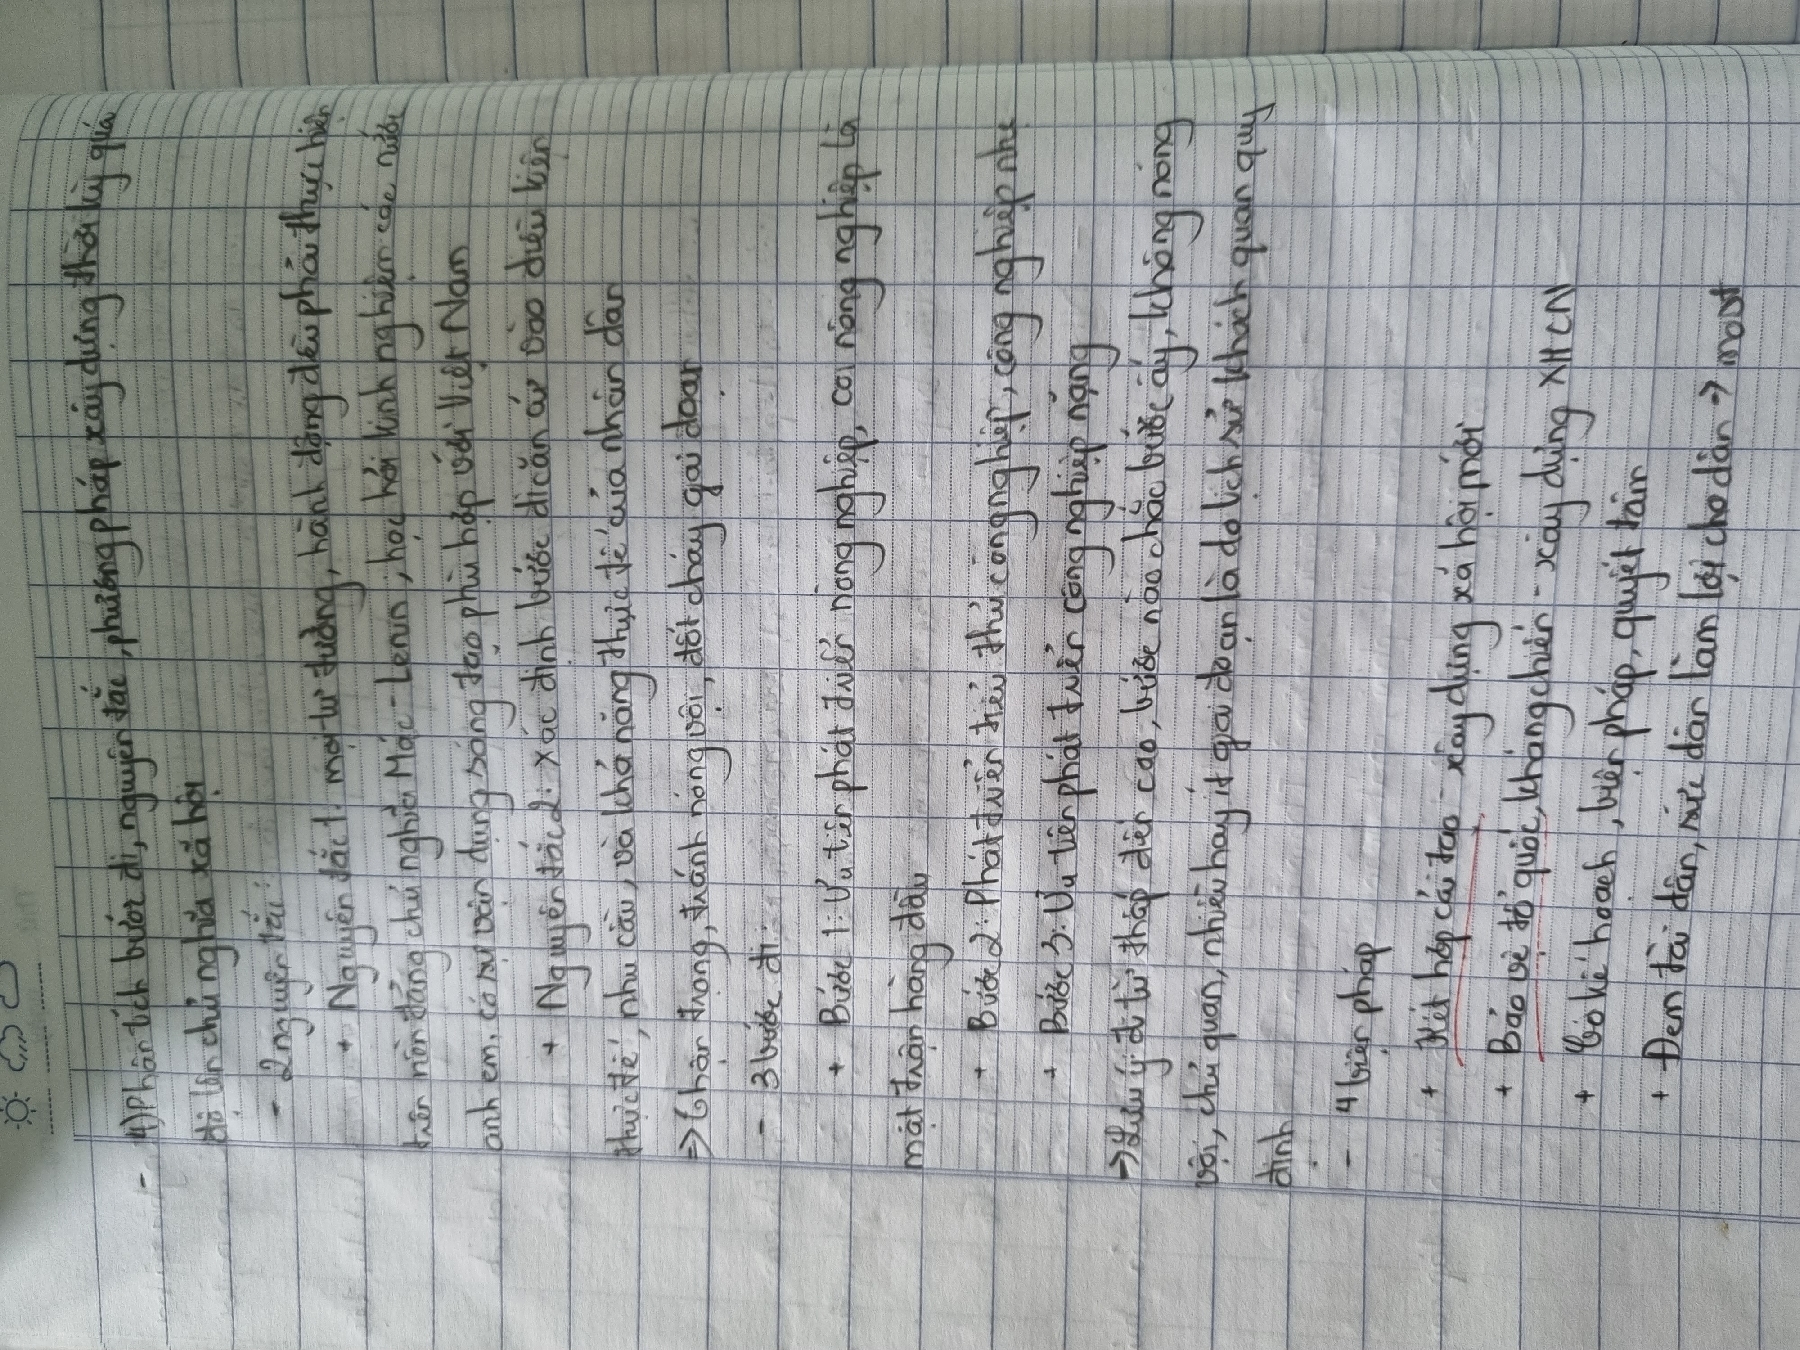 - 4) Phân tích bước đi, nguyên tắc, phương pháp xây dựng thời kỳ quá
độ lên chủ nghĩa xã hội
- 2 nguyên tắc:
+ Nguyên tắc 1: mọi tư tưởng, hành động đều phải thực hiện
trên nền tảng chủ nghĩa Mác - Lênin, học hỏi kinh nghiệm các nước
anh em, có sự vận dụng sáng tạo phù hợp với Việt Nam
+ Nguyên tắc 2: Xác định bước đi căn cứ vào điều kiện
thực tế, nhu cầu, và khả năng thực tế của nhân dân
=> Thận trọng, tránh nóng vội, đốt cháy gai đoạn
- 3 bước đi:
+ Bước 1: Ưu tiên phát triển nông nghiệp, coi nông nghiệp là
mặt trận hàng đầu
+ Bước 2: Phát triển tiểu thủ công nghiệp, công nghiệp nhẹ
+ Bước 3: Ưu tiên phát triển công nghiệp nặng
-> Lưu ý đi từ thấp đến cao, bước nào chắc bước ấy, không nóng
vội, chủ quan, nhiều hay ít gai đoạn là do lịch sử khách quan quy
định
- 4 biện pháp
+ Kết hợp cải tạo - xây dựng xã hội mới
+ Bảo vệ tổ quốc, kháng chiến - xây dựng XHCN
+ Có kế hoạch, biện pháp, quyết tâm
+ Đem tài dân, sức dân làm lợi cho dân -> most